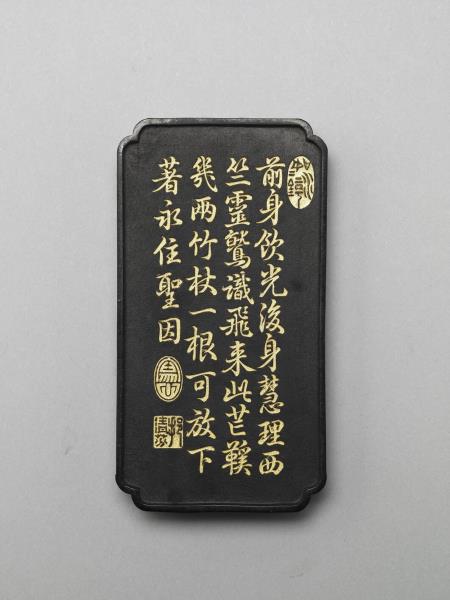 前身飲光後身慧理西
竺靈鷲識飛来此芒鞵
幾两竹杖一根可放下
著永住聖因